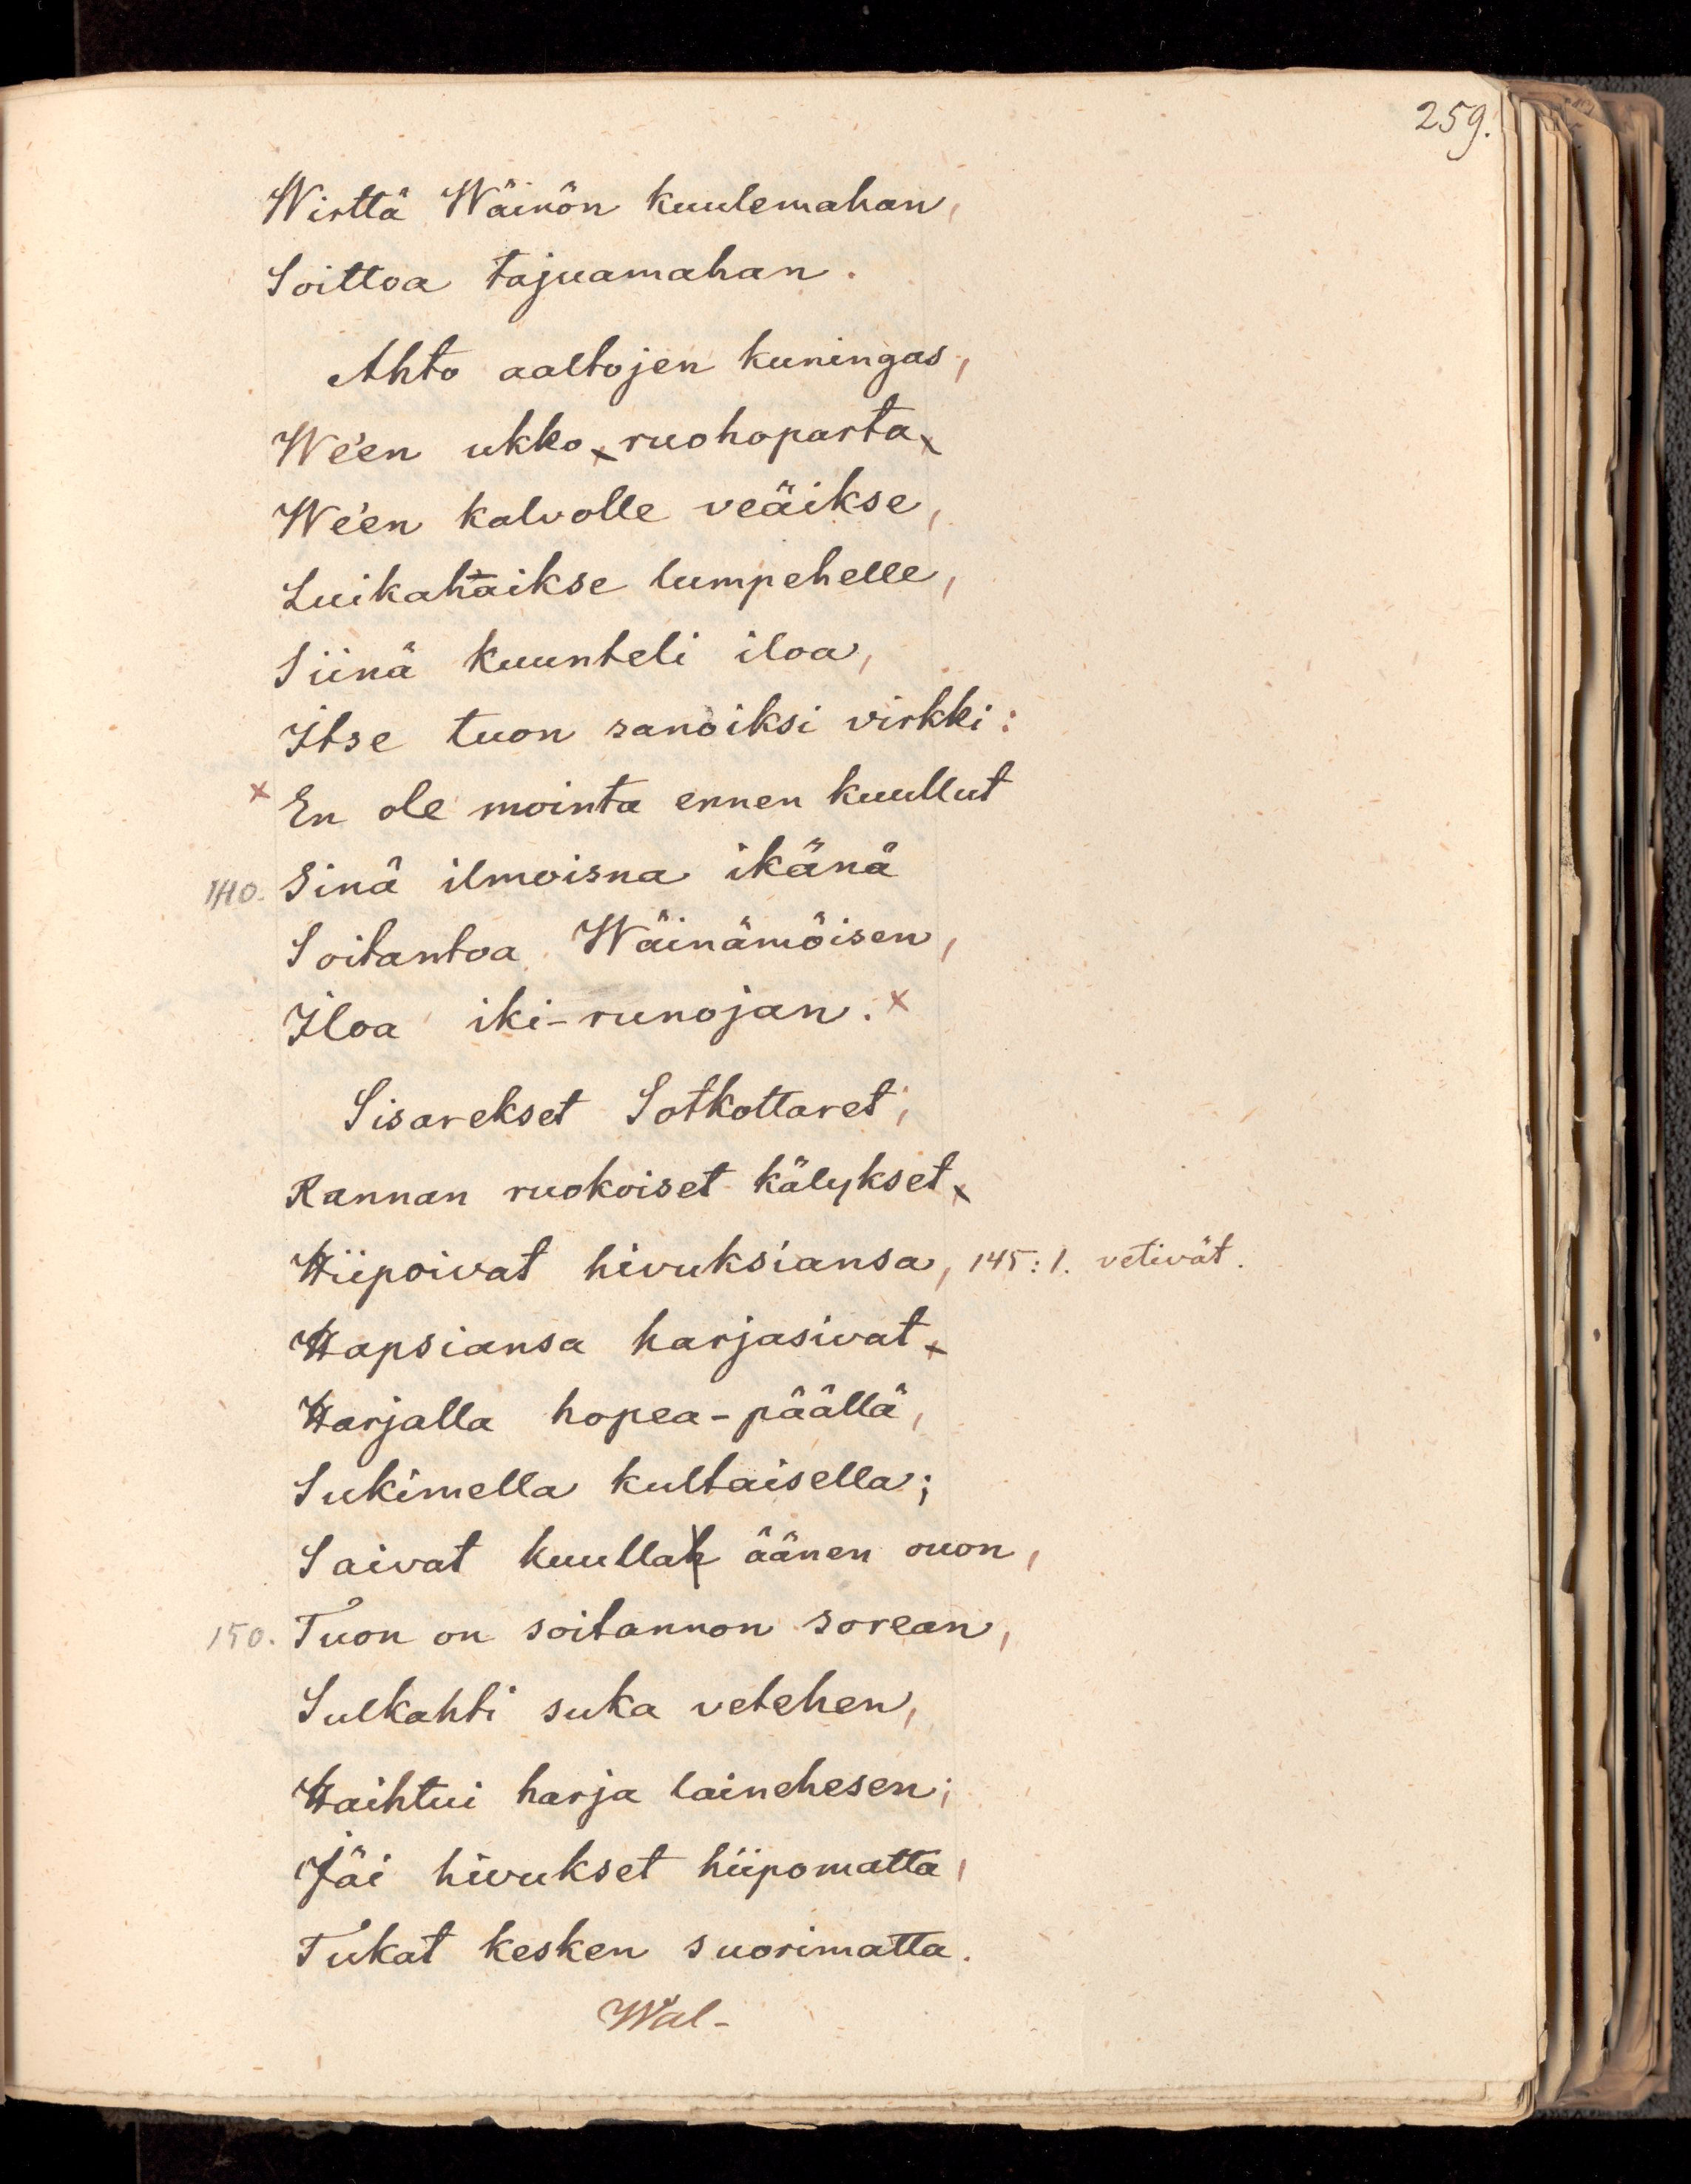 259.
Wirttä Wäinön kuulemahan,
Soittoa tajuamahan.
Ahto aaltojen kuningas,
We'en ukko x ruohoparta x
We'en kalvolle veäikse,
Luikahaikse lumpehelle,
Siinä kuunteli iloa,
Itse tuon sanoiksi virkki:
x En ole mointa ennen kuullut
140. Sinä ilmoisna ikänä
Soitantoa Wäinämöisen,
Iloa iki-runojan. x
Sisarekset Sotkottaret,
Rannan ruokoiset kälykset x
Hiipoivat hivuksiansa, 145: 1. vetivät.
Hapsiansa harjasivat x
Harjalla hopea-päällä,
Sukimella kultaisella;
Saivat kuullah äänen ouon,
150. Tuon on soitannon sorean,
Sulkahti suka vetehen,
Haihtui harja lainehesen;
Jäi hivukset hiipomatta,
Tukat kesken suorimatta.
Wal-